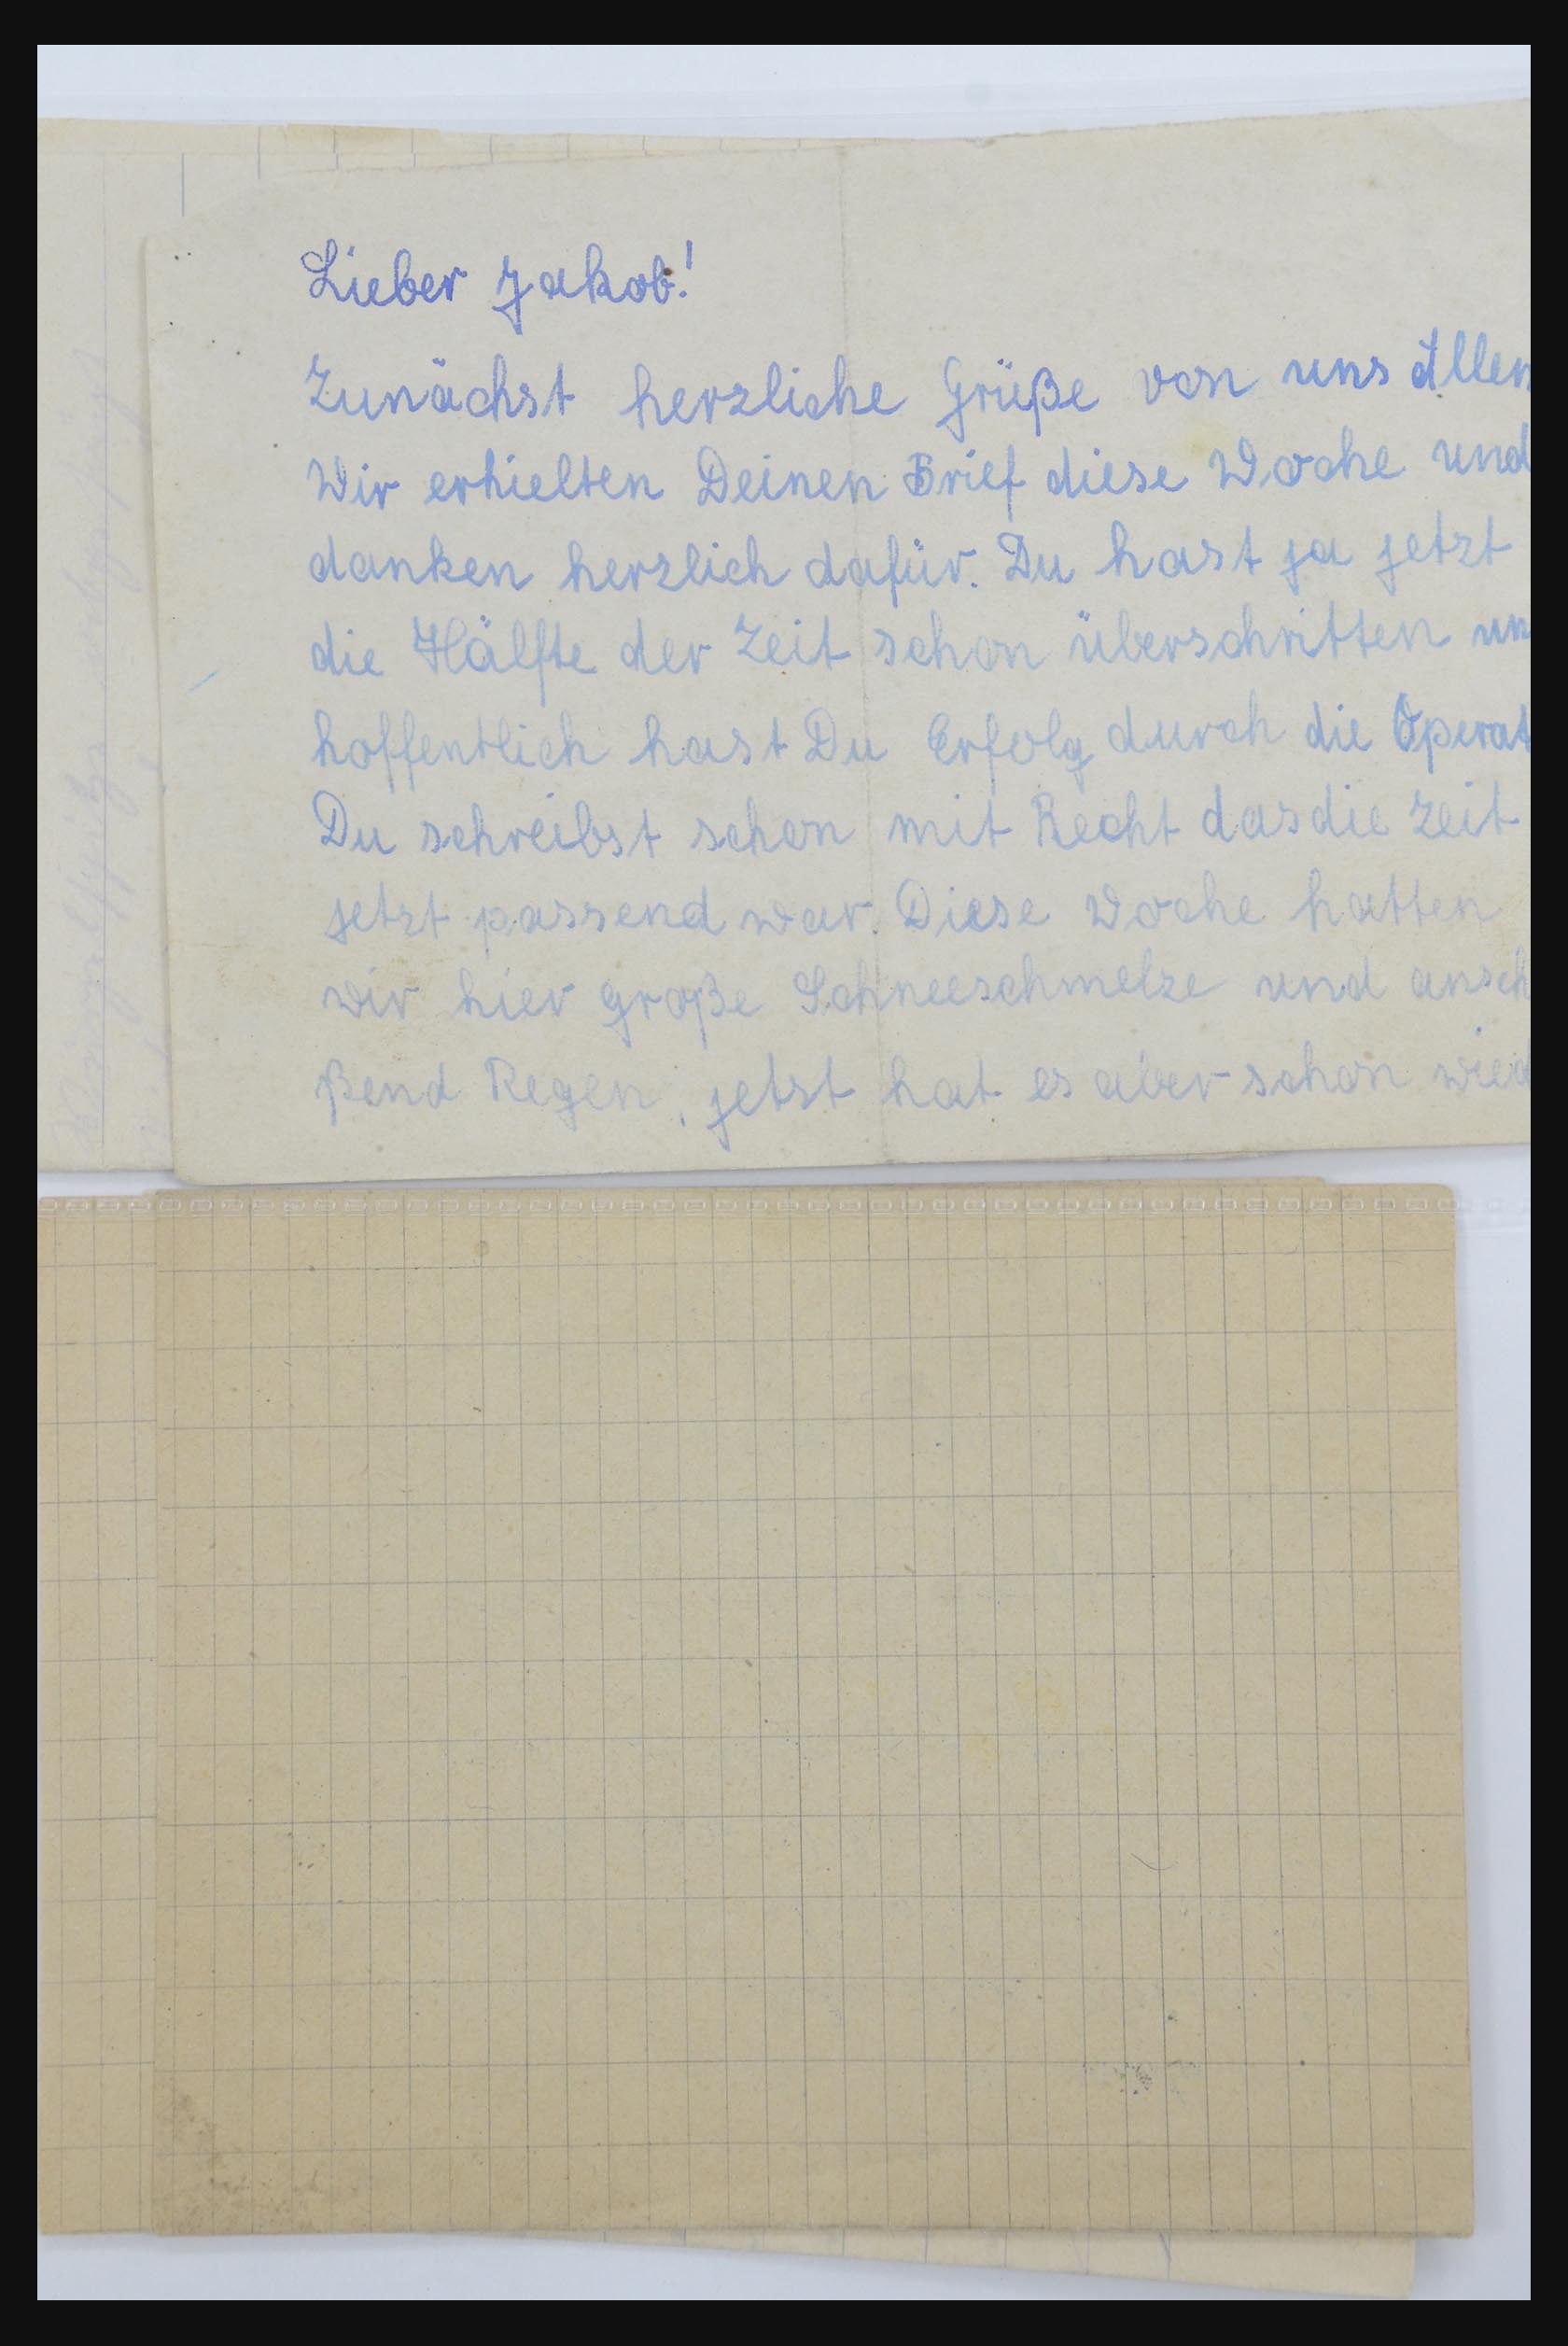 Lieber Jakob!
Zunächst herzliche Grüße von uns Allen
Wir erhielten Deinen Brief diese Woche und
danken herzlich dafür. Du hast ja jetzt
die Hälfte der Zeit schon überschritten un
hoffentlich hast Du Erfolg durch die Operat
Du schreibst schon mit Recht das die Zeit
jetzt passend war. Diese Woche hatten
wir hier große Schneeschmelze und ansch
ßend Regen, jetzt hat es aber schon wied